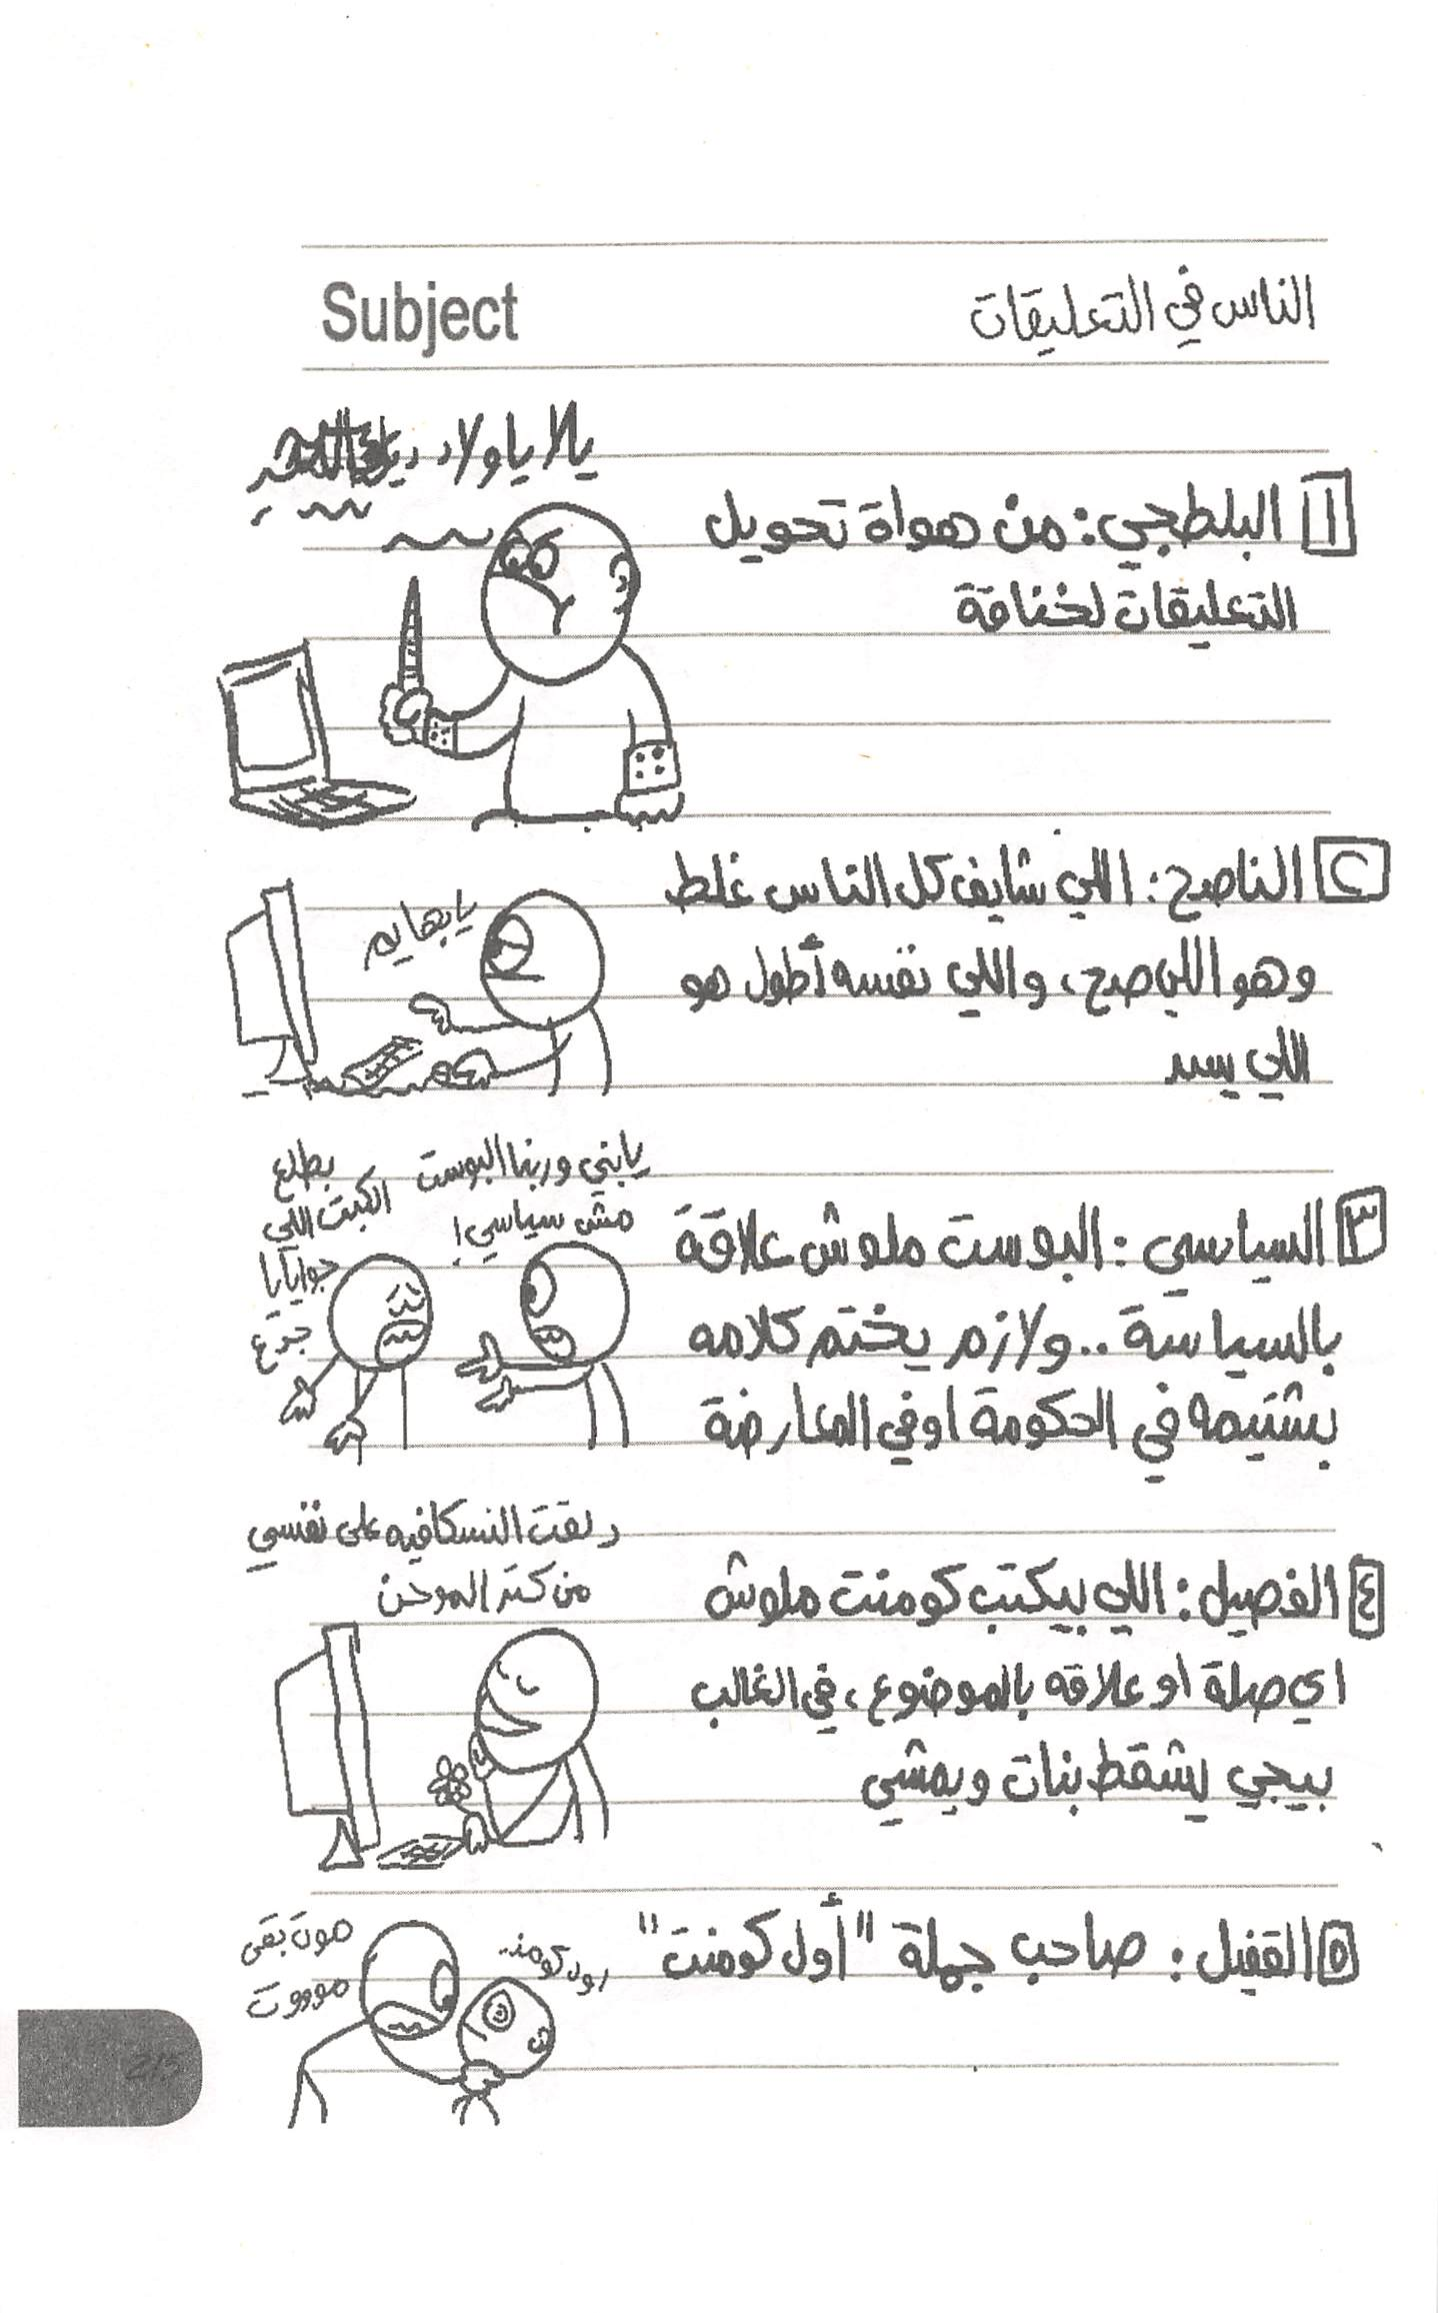 Subject
الناس في التعليقات
يالا ياولاد
١ البلطجي: من هواة تحويل
التعليقات لخناقة
٢ الناصح: اللي شايف كل الناس غلط
وهو اللي صح، واللي نفسه أطول هو
اللي يسد
يابهايم
يابني وربنا البوست
مش سياسي!
بطلع
الكبت اللي
جوايايا
جدع
٣ السياسي: البوست ملوش علاقة
بالسياسة.. ولازم يختم كلامه
بشتيمه في الحكومة او في المعارضة
دلقت النسكافيه على نفسي
من كتر الموحن
٤ الفصيل: اللي بيكتب كومنت ملوش
اي صلة او علاقه بالموضوع، في الغالب
بيجي يشقط بنات ويمشي
٥ القفيل: صاحب جملة "أول كومنت"
اول كومنت
موت بقى
موووت
215